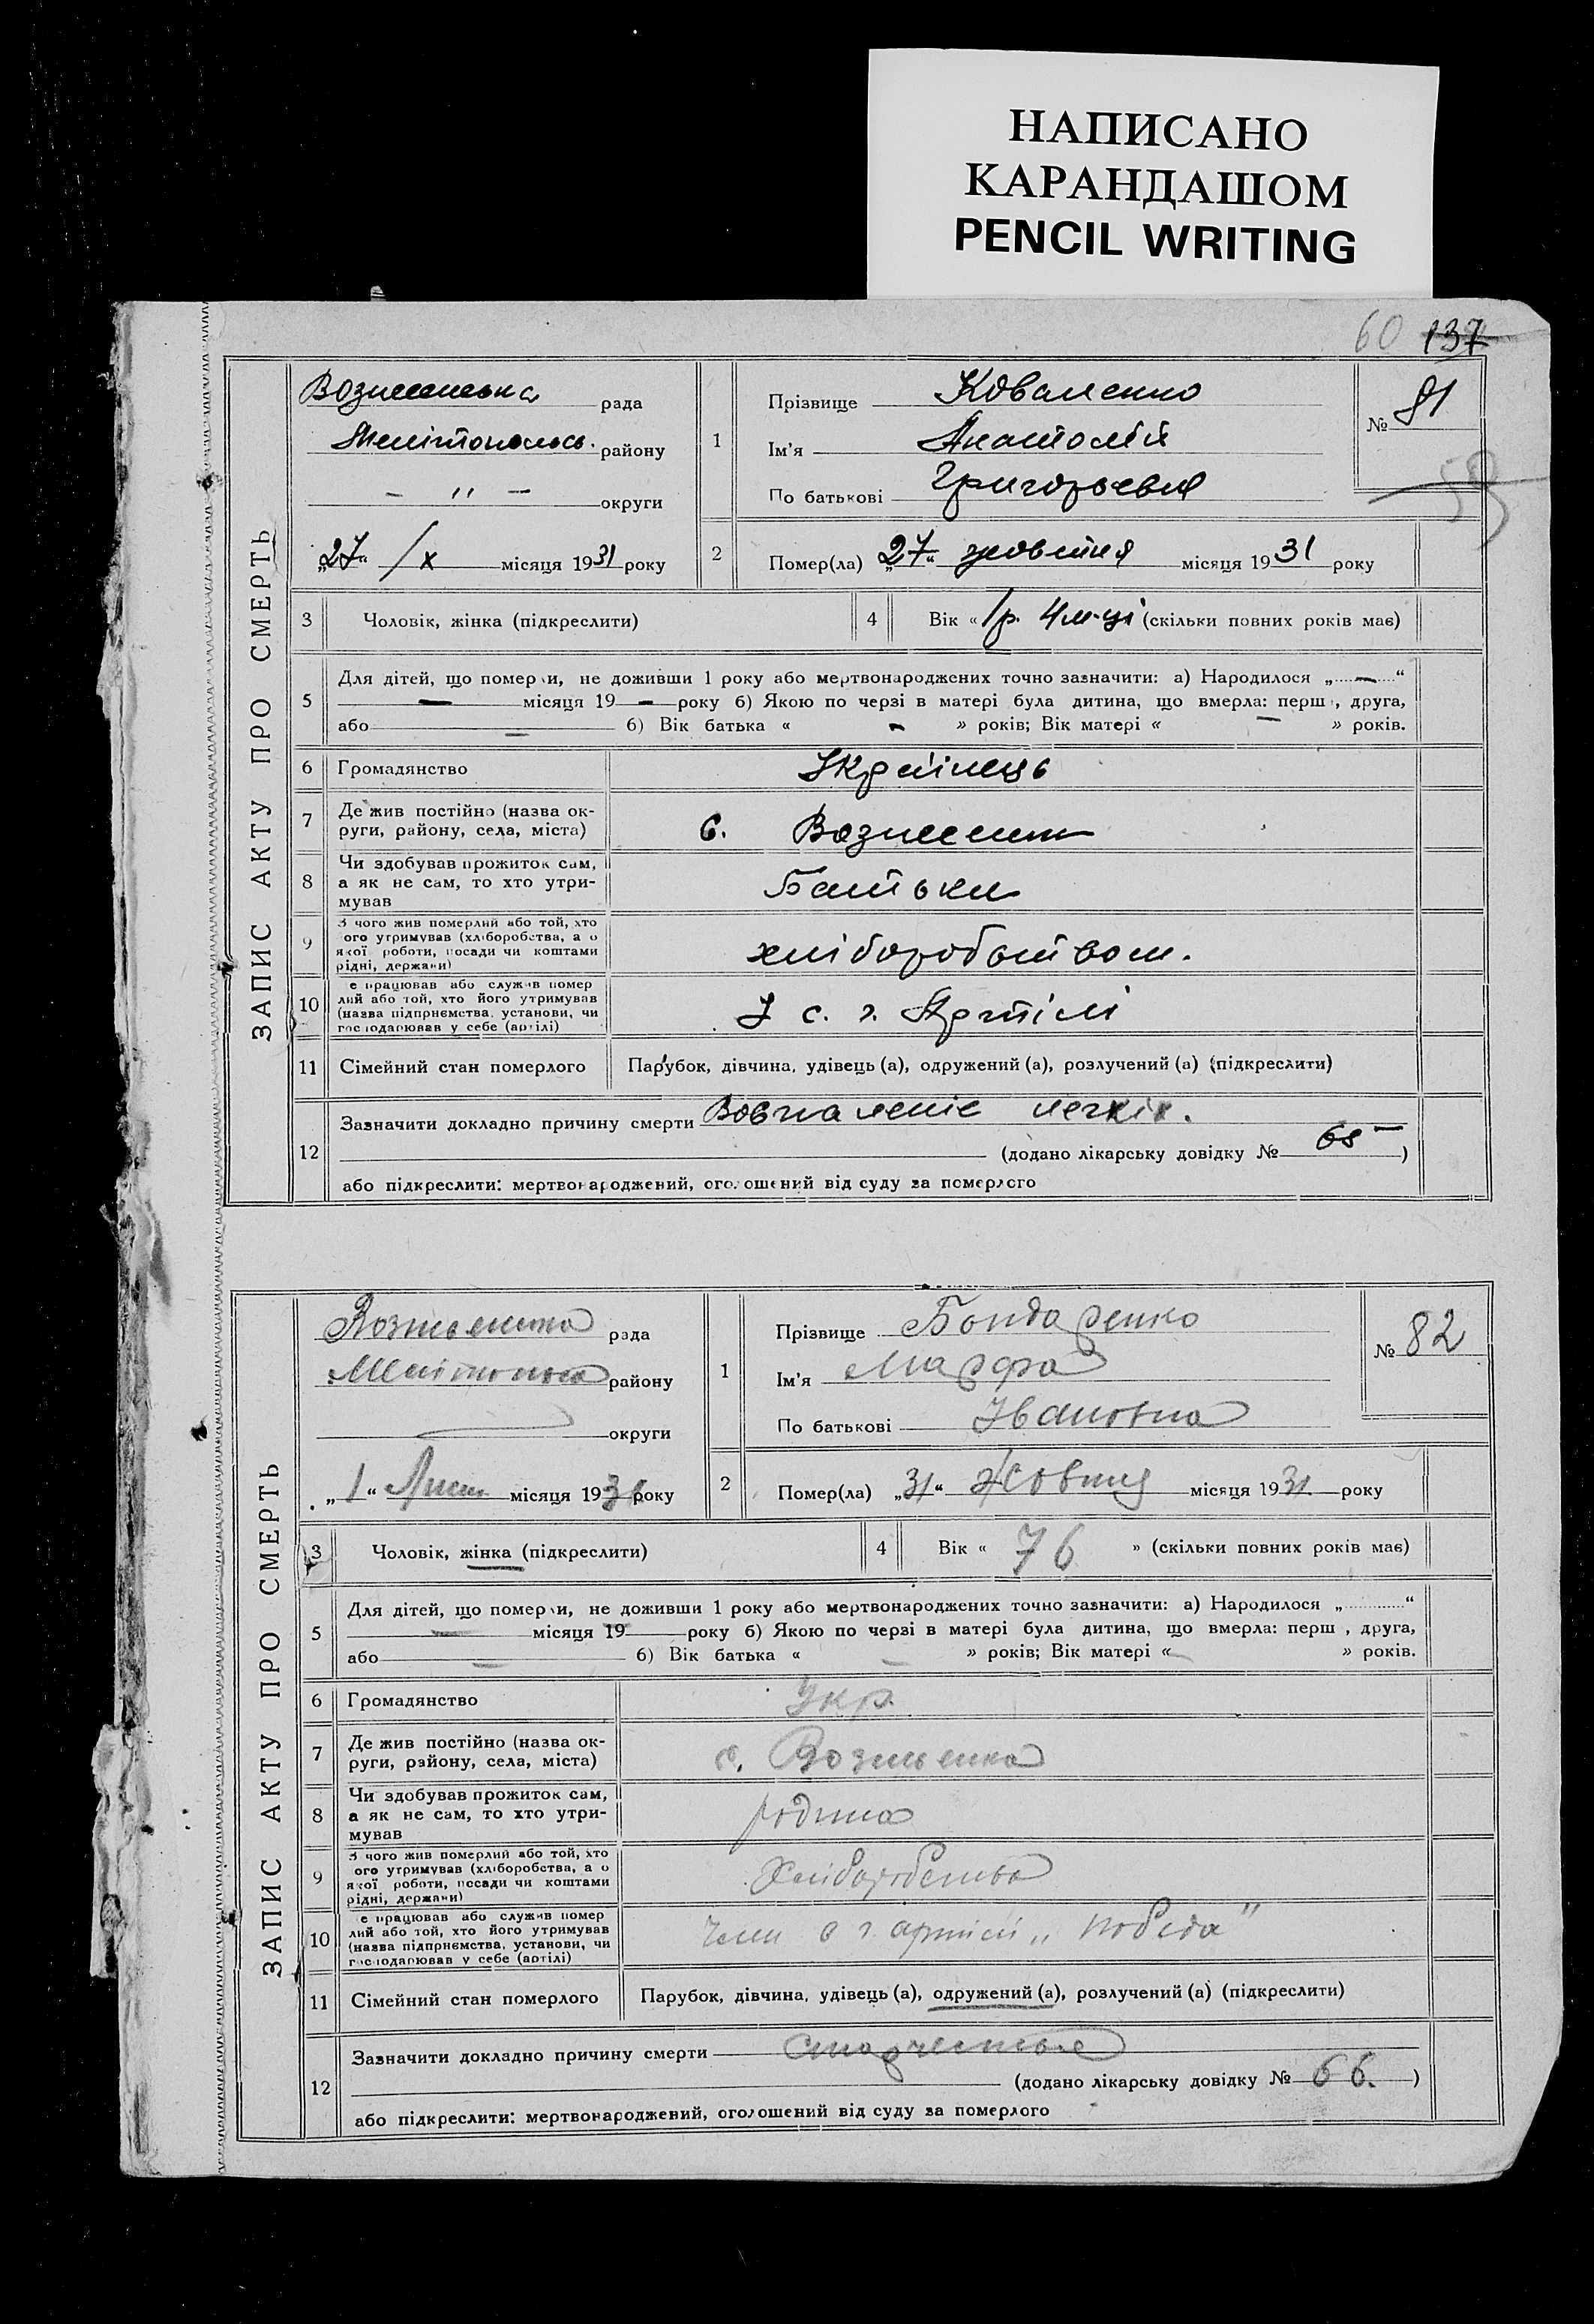 НАПИСАНО
КАРАНДАШОМ
PENCIL WRITING
60 137
ЗАПИС АКТУ ПРО СМЕРТЬ
Вознесенська рада
Мелітопольсь. району
– " – округи
„27“ /X місяця 1931 року
1
Прізвище Коваленко
Ім'я Анатолій
По батькові Григорьевич
№ 81
59
2 Помер(ла) „27“ жовтня місяця 1931 року
3 Чоловік, жінка (підкреслити)
4 Вік « 1р. 4 м-ці (скільки повних років має)
5 Для дітей, що помер и, не доживши 1 року або мертвонароджених точно зазначити: а) Народилося „ — “
— місяця 19 — року б) Якою по черзі в матері була дитина, що вмерла: перш , друга,
або — б) Вік батька « — » років; Вік матері « — » років.
6 Громадянство Українець
7 Де жив постійно (назва ок-
руги, району, села, міста) с. Вознесенк
8 Чи здобував прожиток сам,
а як не сам, то хто утри-
мував Батьки
9 З чого жив померлий або той, хто
ого утримував (хліборобства, а о
якої роботи, посади чи коштами
рідні, держави) хліборобством.
10 е працював або служив помер
лий або той, хто його утримував
(назва підприємства, установи, чи
господарював у себе (артілі) У с. г. Артілі
11 Сімейний стан померлого Парубок, дівчина, удівець (а), одружений (а), розлучений (а) (підкреслити)
12 Зазначити докладно причину смерти Вовпаленіє легких.
(додано лікарську довідку № 65 )
або підкреслити: мертвонароджений, оголошений від суду за померлого
ЗАПИС АКТУ ПРО СМЕРТЬ
Вознесенка рада
району
округи
„1“ Лист місяця 1931 року
1
Прізвище Бондаренко
Ім'я Марфа
По батькові Ивановна
№ 82
2 Помер(ла) „31“ Жовтня місяця 1931. року
3 Чоловік, жінка (підкреслити)
4 Вік « 76 » (скільки повних років має)
5 Для дітей, що помер и, не доживши 1 року або мертвонароджених точно зазначити: а) Народилося „ “
— місяця 19 року б) Якою по черзі в матері була дитина, що вмерла: перш , друга,
або — б) Вік батька « — » років; Вік матері « — » років.
6 Громадянство Укр.
7 Де жив постійно (назва ок-
руги, району, села, міста) с. Вознесенка
8 Чи здобував прожиток сам,
а як не сам, то хто утри-
мував родина
9 З чого жив померлий або той, хто
ого утримував (хліборобства, а о
якої роботи, посади чи коштами
рідні, держави) Хліборобство
10 е працював або служив помер
лий або той, хто його утримував
(назва підприємства, установи, чи
господарював у себе (артілі) член с г. артілі „победа"
11 Сімейний стан померлого Парубок, дівчина, удівець (а), одружений (а), розлучений (а) (підкреслити)
12 Зазначити докладно причину смерти
(додано лікарську довідку № 66. )
або підкреслити: мертвонароджений, оголошений від суду за померлого